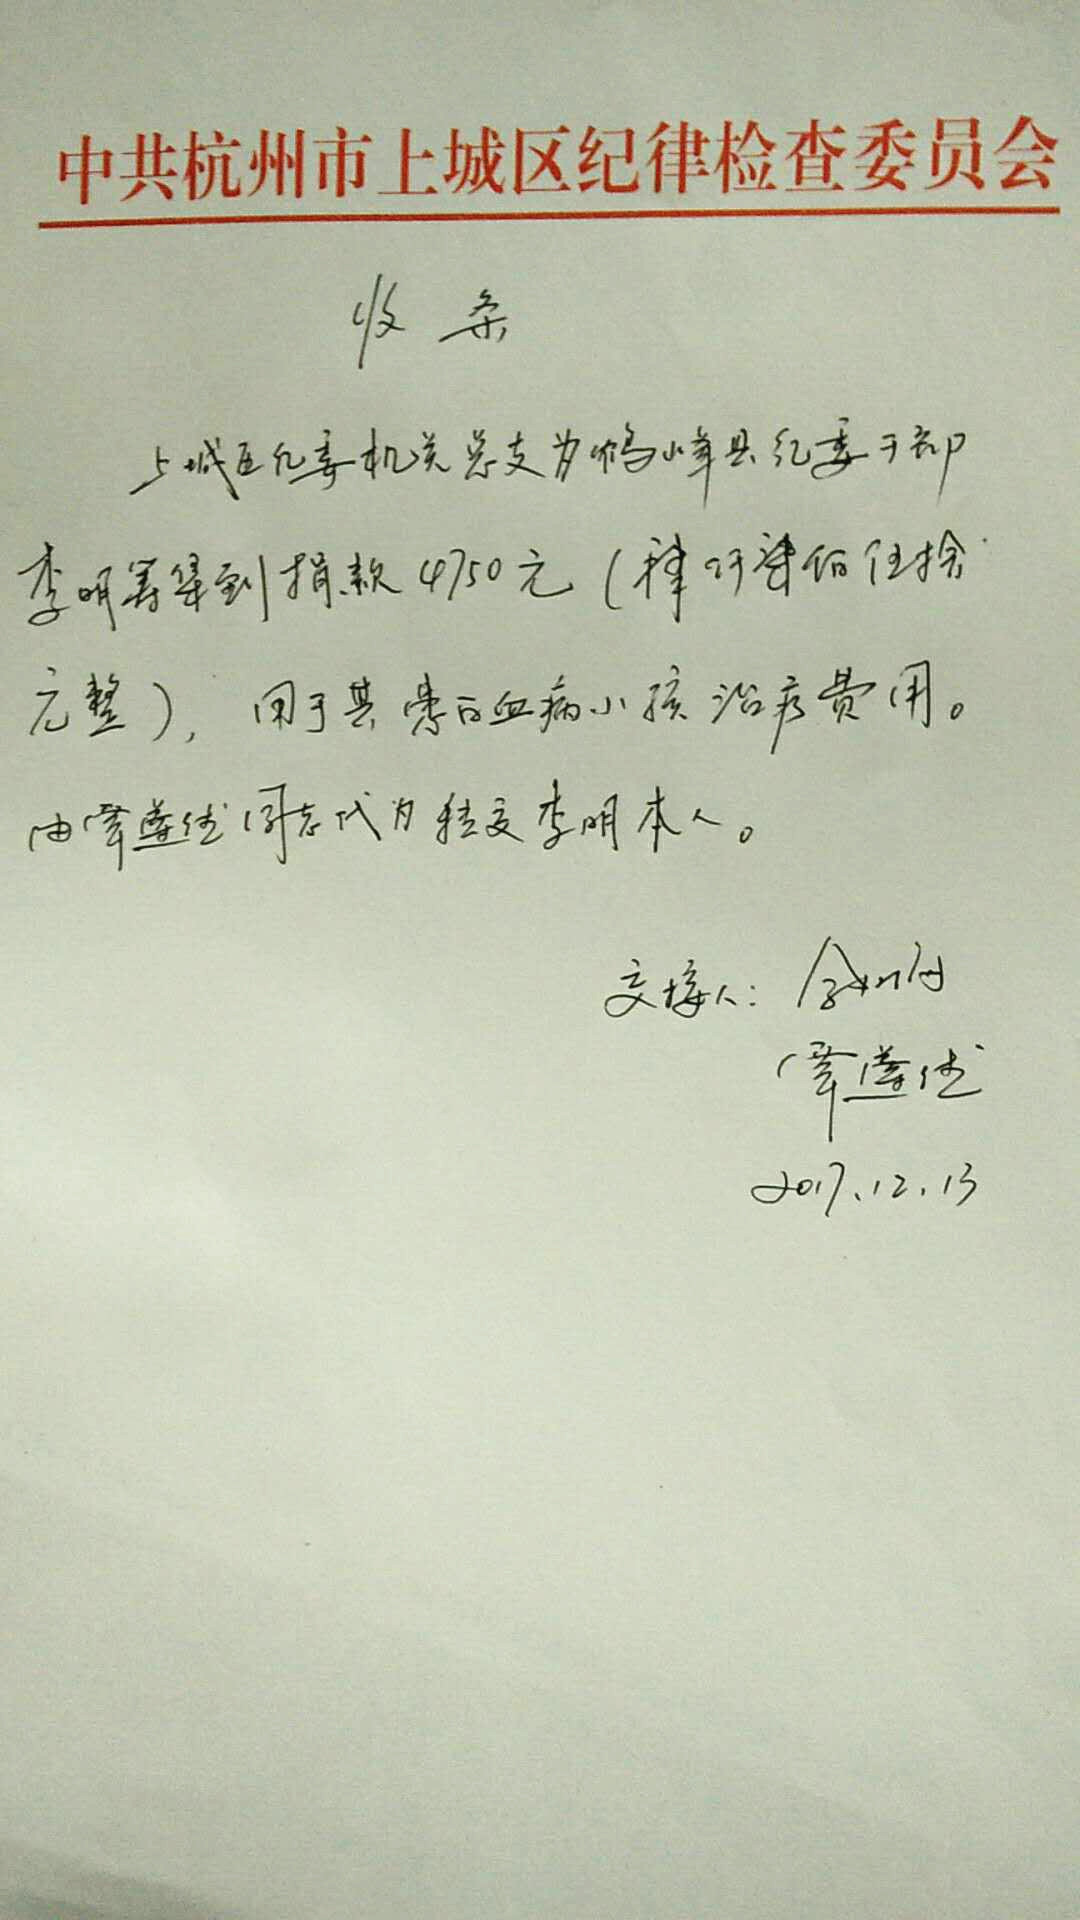 中共杭州市上城区纪律检查委员会
收条
上城区纪委机关总支为鹤峰县纪委干部
李明筹集到捐款4750元(肆仟柒佰伍拾
元整),用于其患白血病小孩治疗费用。
由覃遵彪同志代为转交李明本人。
交接人:
覃遵彪
2017.12.13